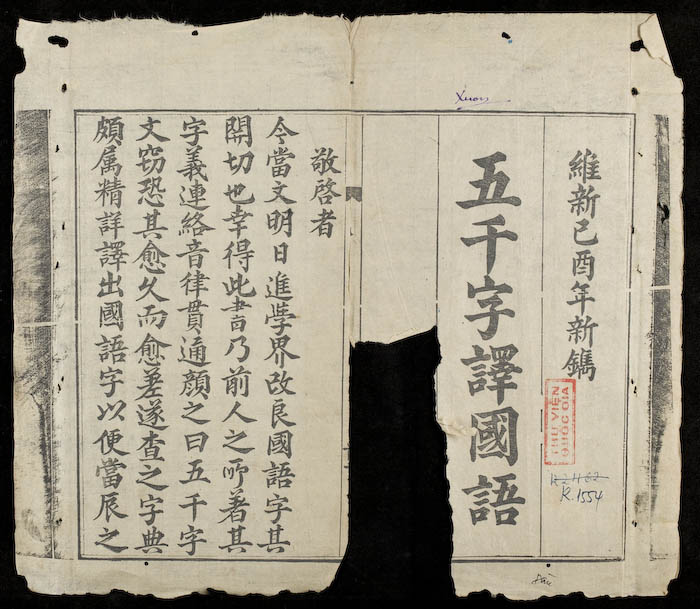 維新己酉年新鐫
五千字譯國語
敬啓者
今當文明日進學界改良國語字其
開切也幸得此書乃前人之所著其
字義連絡音律貫通顏之曰五千字
文窃恐其愈久而愈差遂查之字典
頗属精詳譯出國語字以便當辰之
Xuon
THƯ VIỆN
QUỐC GIA
R.1554